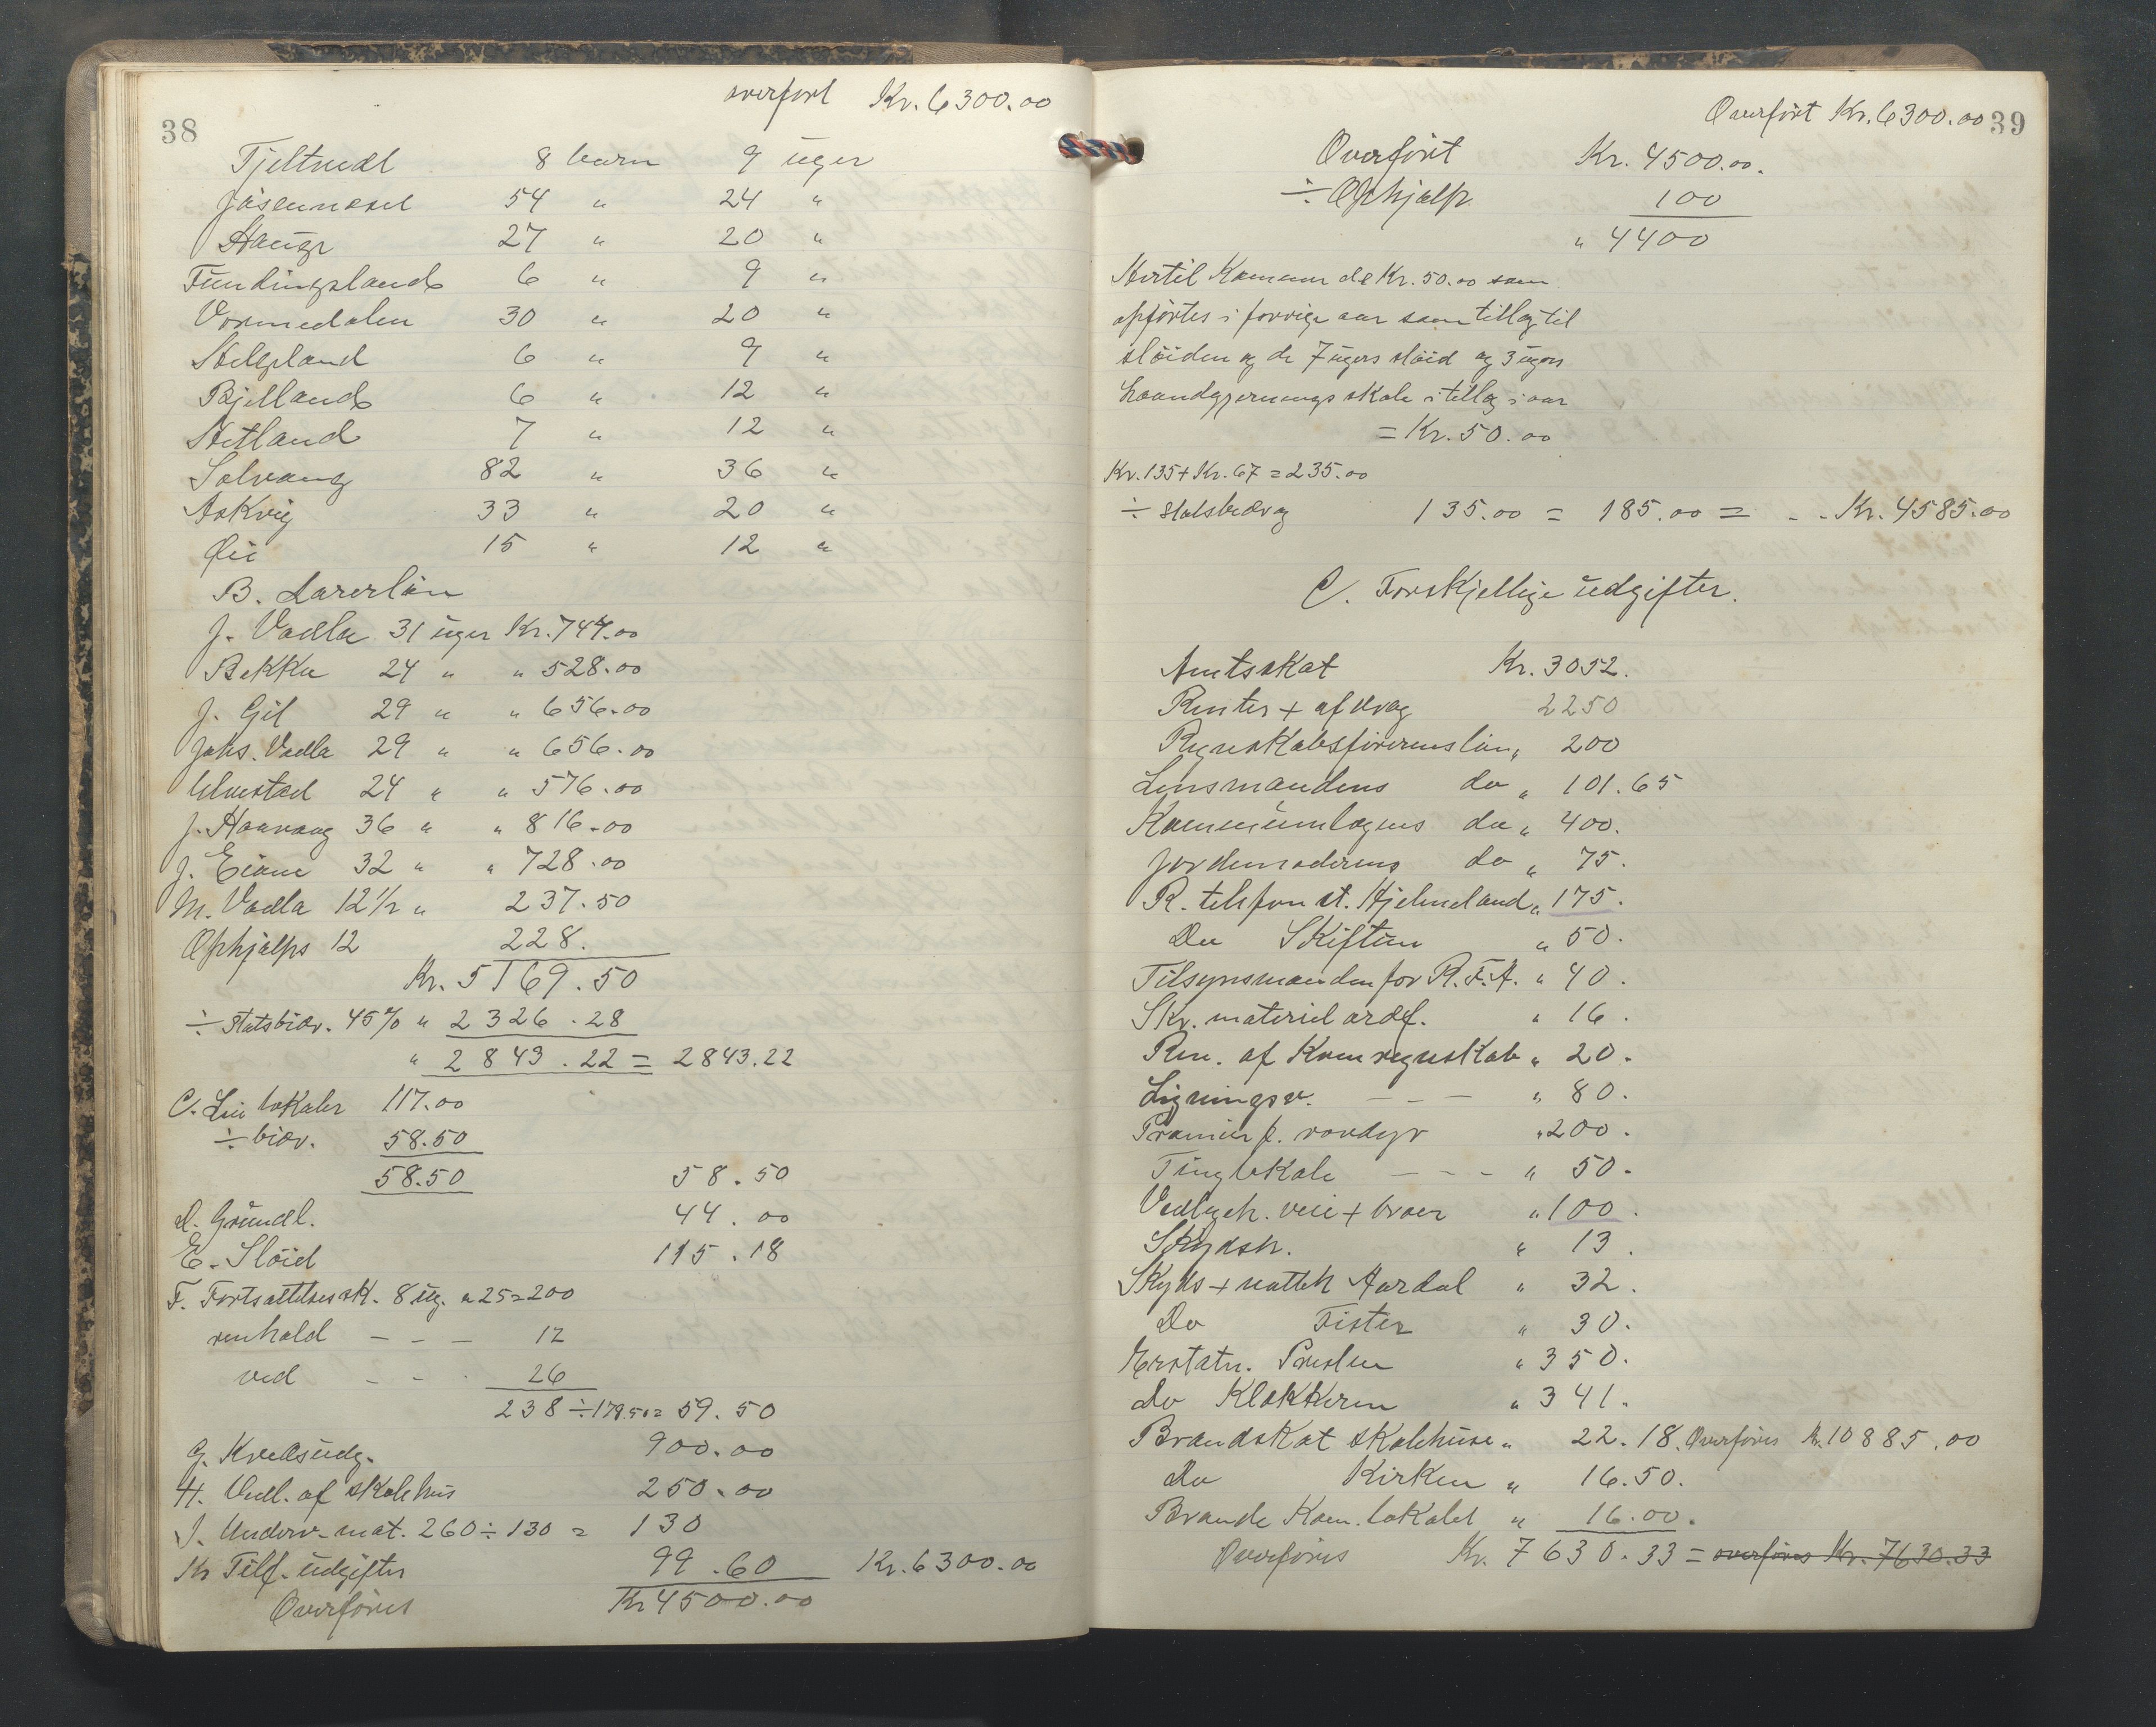 overført Kr. 6300.00
38
Tjeltvedt 8 barn 9 uger
Jøsenneset 54 " 24 "
Hauge 27 " 20 "
Fundingsland 6 " 9 "
Vormedalen 30 " 20 "
Helgeland 6 " 9 "
Bjelland 6 " 12 "
Hetland 7 " 12 "
Solvang 82 " 36 "
Askvig 33 " 20 "
Øie 15 " 12 "
B. Lærerløn
J. Vadla 31 uger Kr. 744.00
Bekka 24 " " 528.00
J. Gil 29 " " 656.00
Johs. Vadla 29 " " 656.00
Ulvestad 24 " " 576.00
J. Haavaag 36 " " 816.00
J. Eiane 32 " " 728.00
M. Vadla 12½ " 237.50
Ophjælps 12 228.
Kr. 5169.50
÷ Statsbidr. 45% " 2326.28
" 2843.22 = 2843.22
C. Leie lokaler 117.00
÷ bidr. 58.50
58.50 58.50
D. Grundl. 44.00
E. Sløid 115.18
F. Fortsættelsessk. 8 ug. a 25=200
renhold - - - 12
ved - - - 26
238 ÷ 178.50 = 59.50
G. Kredsudg. 900.00
H. Vedl. af skolehus 250.00
J. Underv. mat. 260 ÷ 130 = 130
K. Tilf. udgifter 99.60 Kr. 6300.00
Overføres Kr 4500.00
Overført Kr. 6300.00 39
Overført Kr. 4500.00.
÷ Ophjælp 100
" 4400
Hertil kommer de Kr. 50.00 som
opførtes i forrige aar som tillæg til
sløiden og de 7 ugers sløid og 3 ugers
haandgjerningsskole i tillæg i aar
= Kr. 50.00
Kr. 135 + Kr. 67 = 235.00
÷ Statsbidrag 135.00 = 185.00 = - - Kr. 4585.00
C. Forskjellige udgifter.
Amtsskat Kr. 3052.
Renter + afdrag 2250
Regnskabsførerens løn " 200
Lensmandens do " 101.65
Kommunelægens do " 400.
Jordemoderens do " 75.
R. telefon st. Hjelmeland " 175.
Do Skiftun " 50.
Tilsynsmanden for R.F.A. " 40.
Skr. materiel ordf. " 16.
Rev. af Komregnskab " 20.
Ligningsv. - - - " 80.
Præmier f. rovdyr " 200.
Tinglokale - - - " 50.
Vedligeh. veie + broer " 100.
Skydsh. " 13.
Skyds + natteh Aardal " 32.
Do Fister " 30.
Erstatn. Presten " 350.
Do Klokkeren " 341.
Brandskat skolehuse " 22.18. Overføres Kr. 10885.00
Do Kirken " 16.50.
Brandk Kom. lokalet " 16.00.
Overføres Kr. 7630.33 = overføres Kr. 7630.33